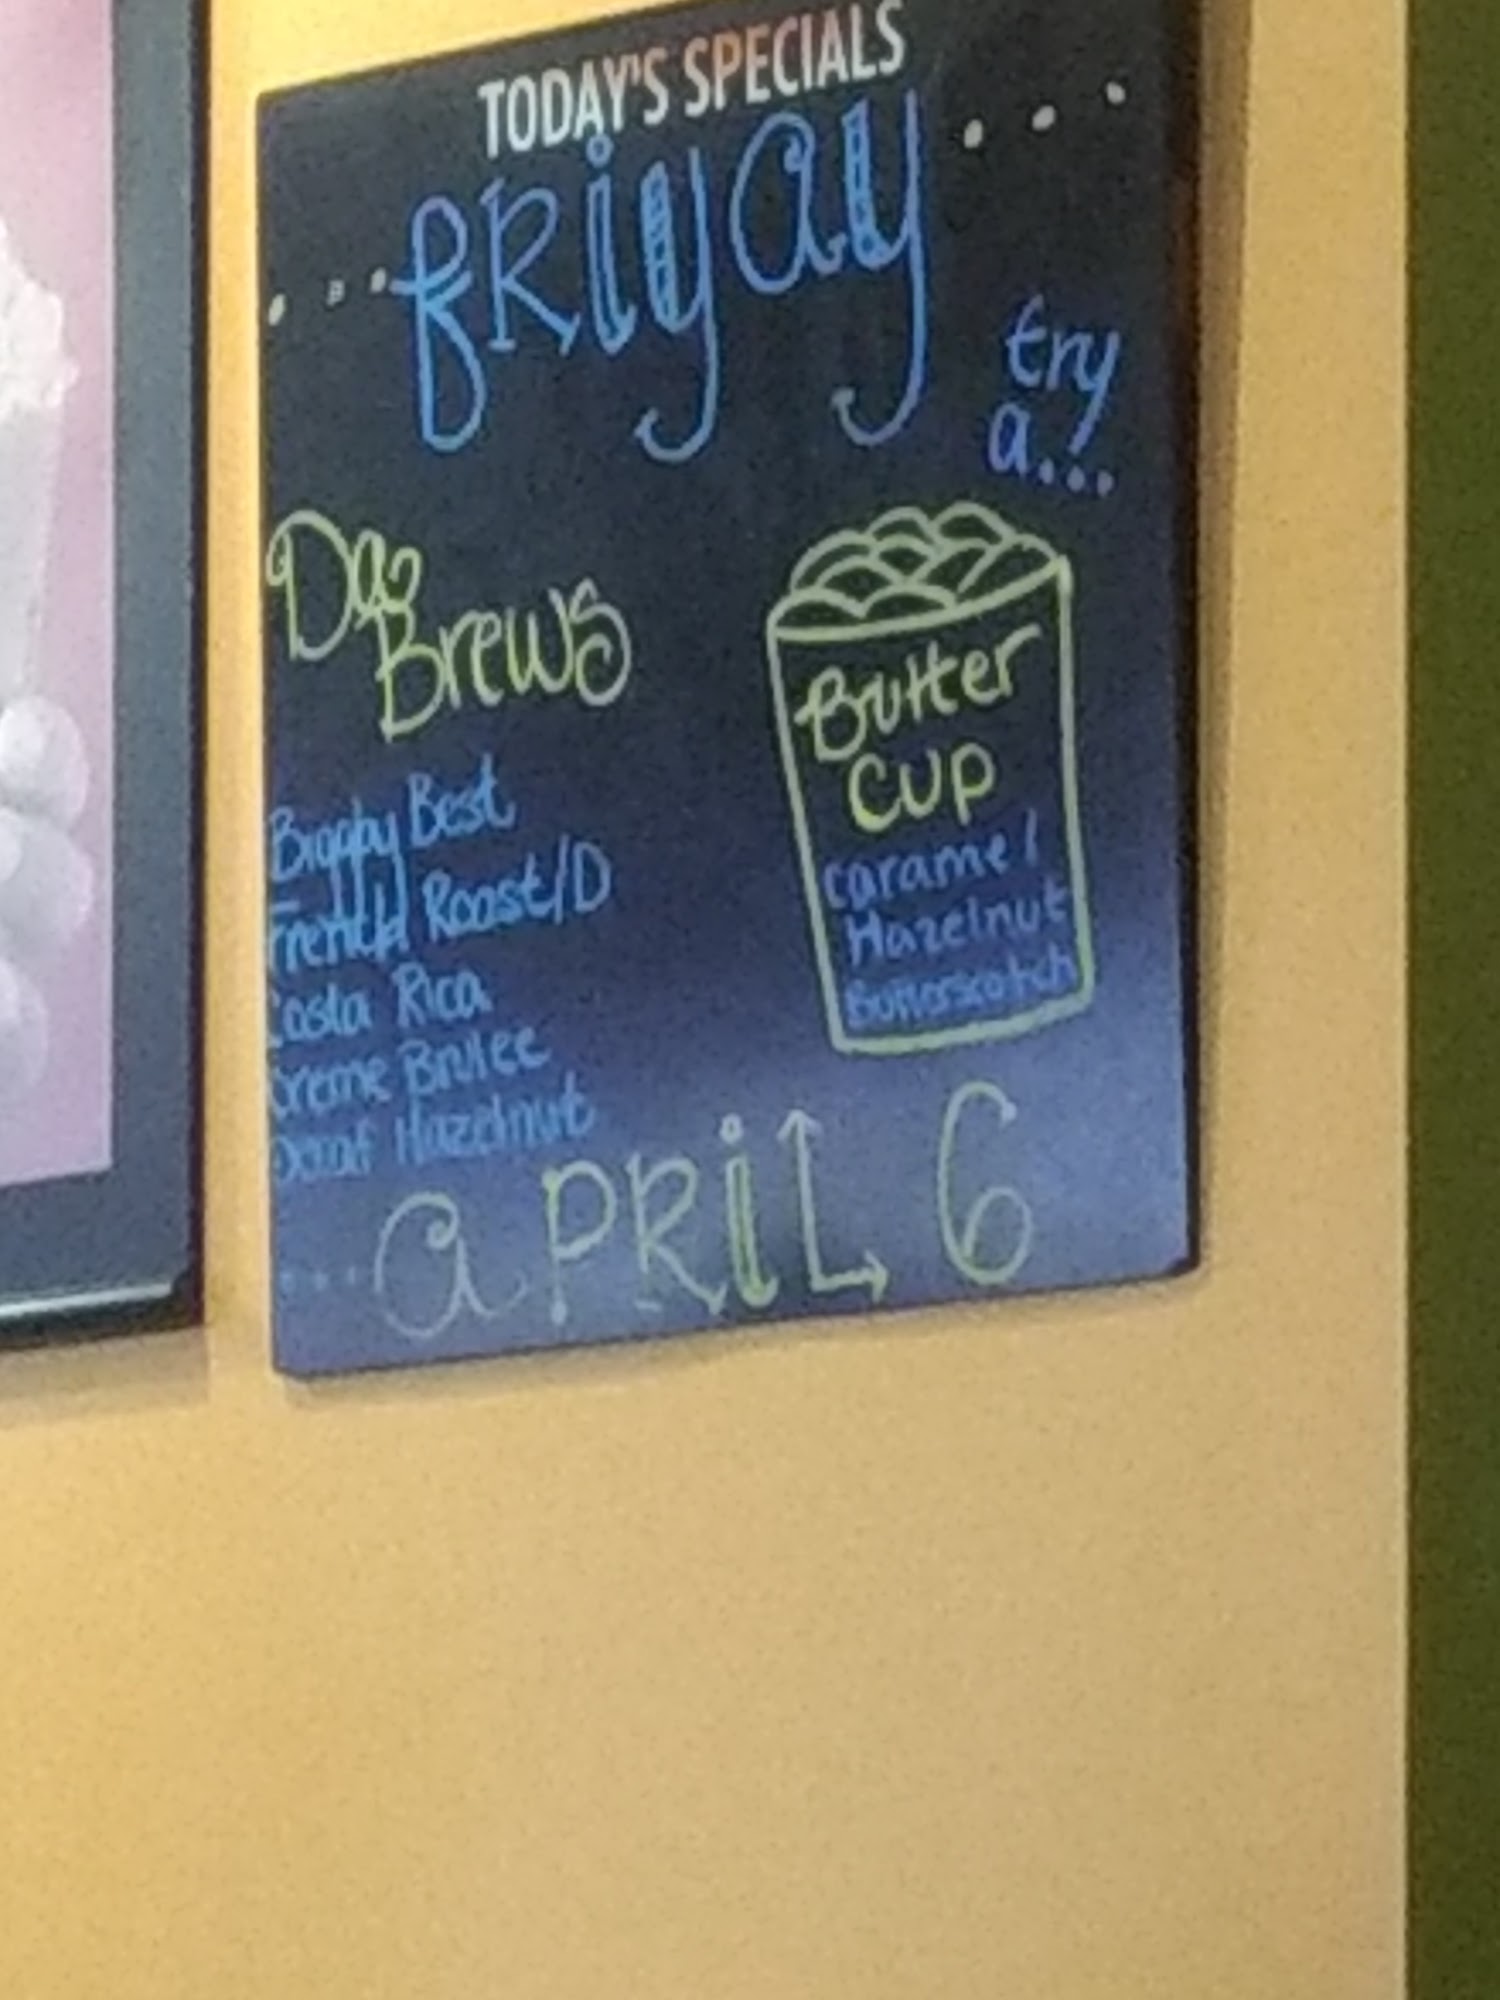 TODAY'S SPECIALS
...fRiyay...
try
a...
Da
Brews
Biggby Best
French Roast/D
Costa Rica
Creme Brulee
Decaf Hazelnut
Butter
Cup
Caramel
Hazelnut
Butterscotch
...aPRiL 6